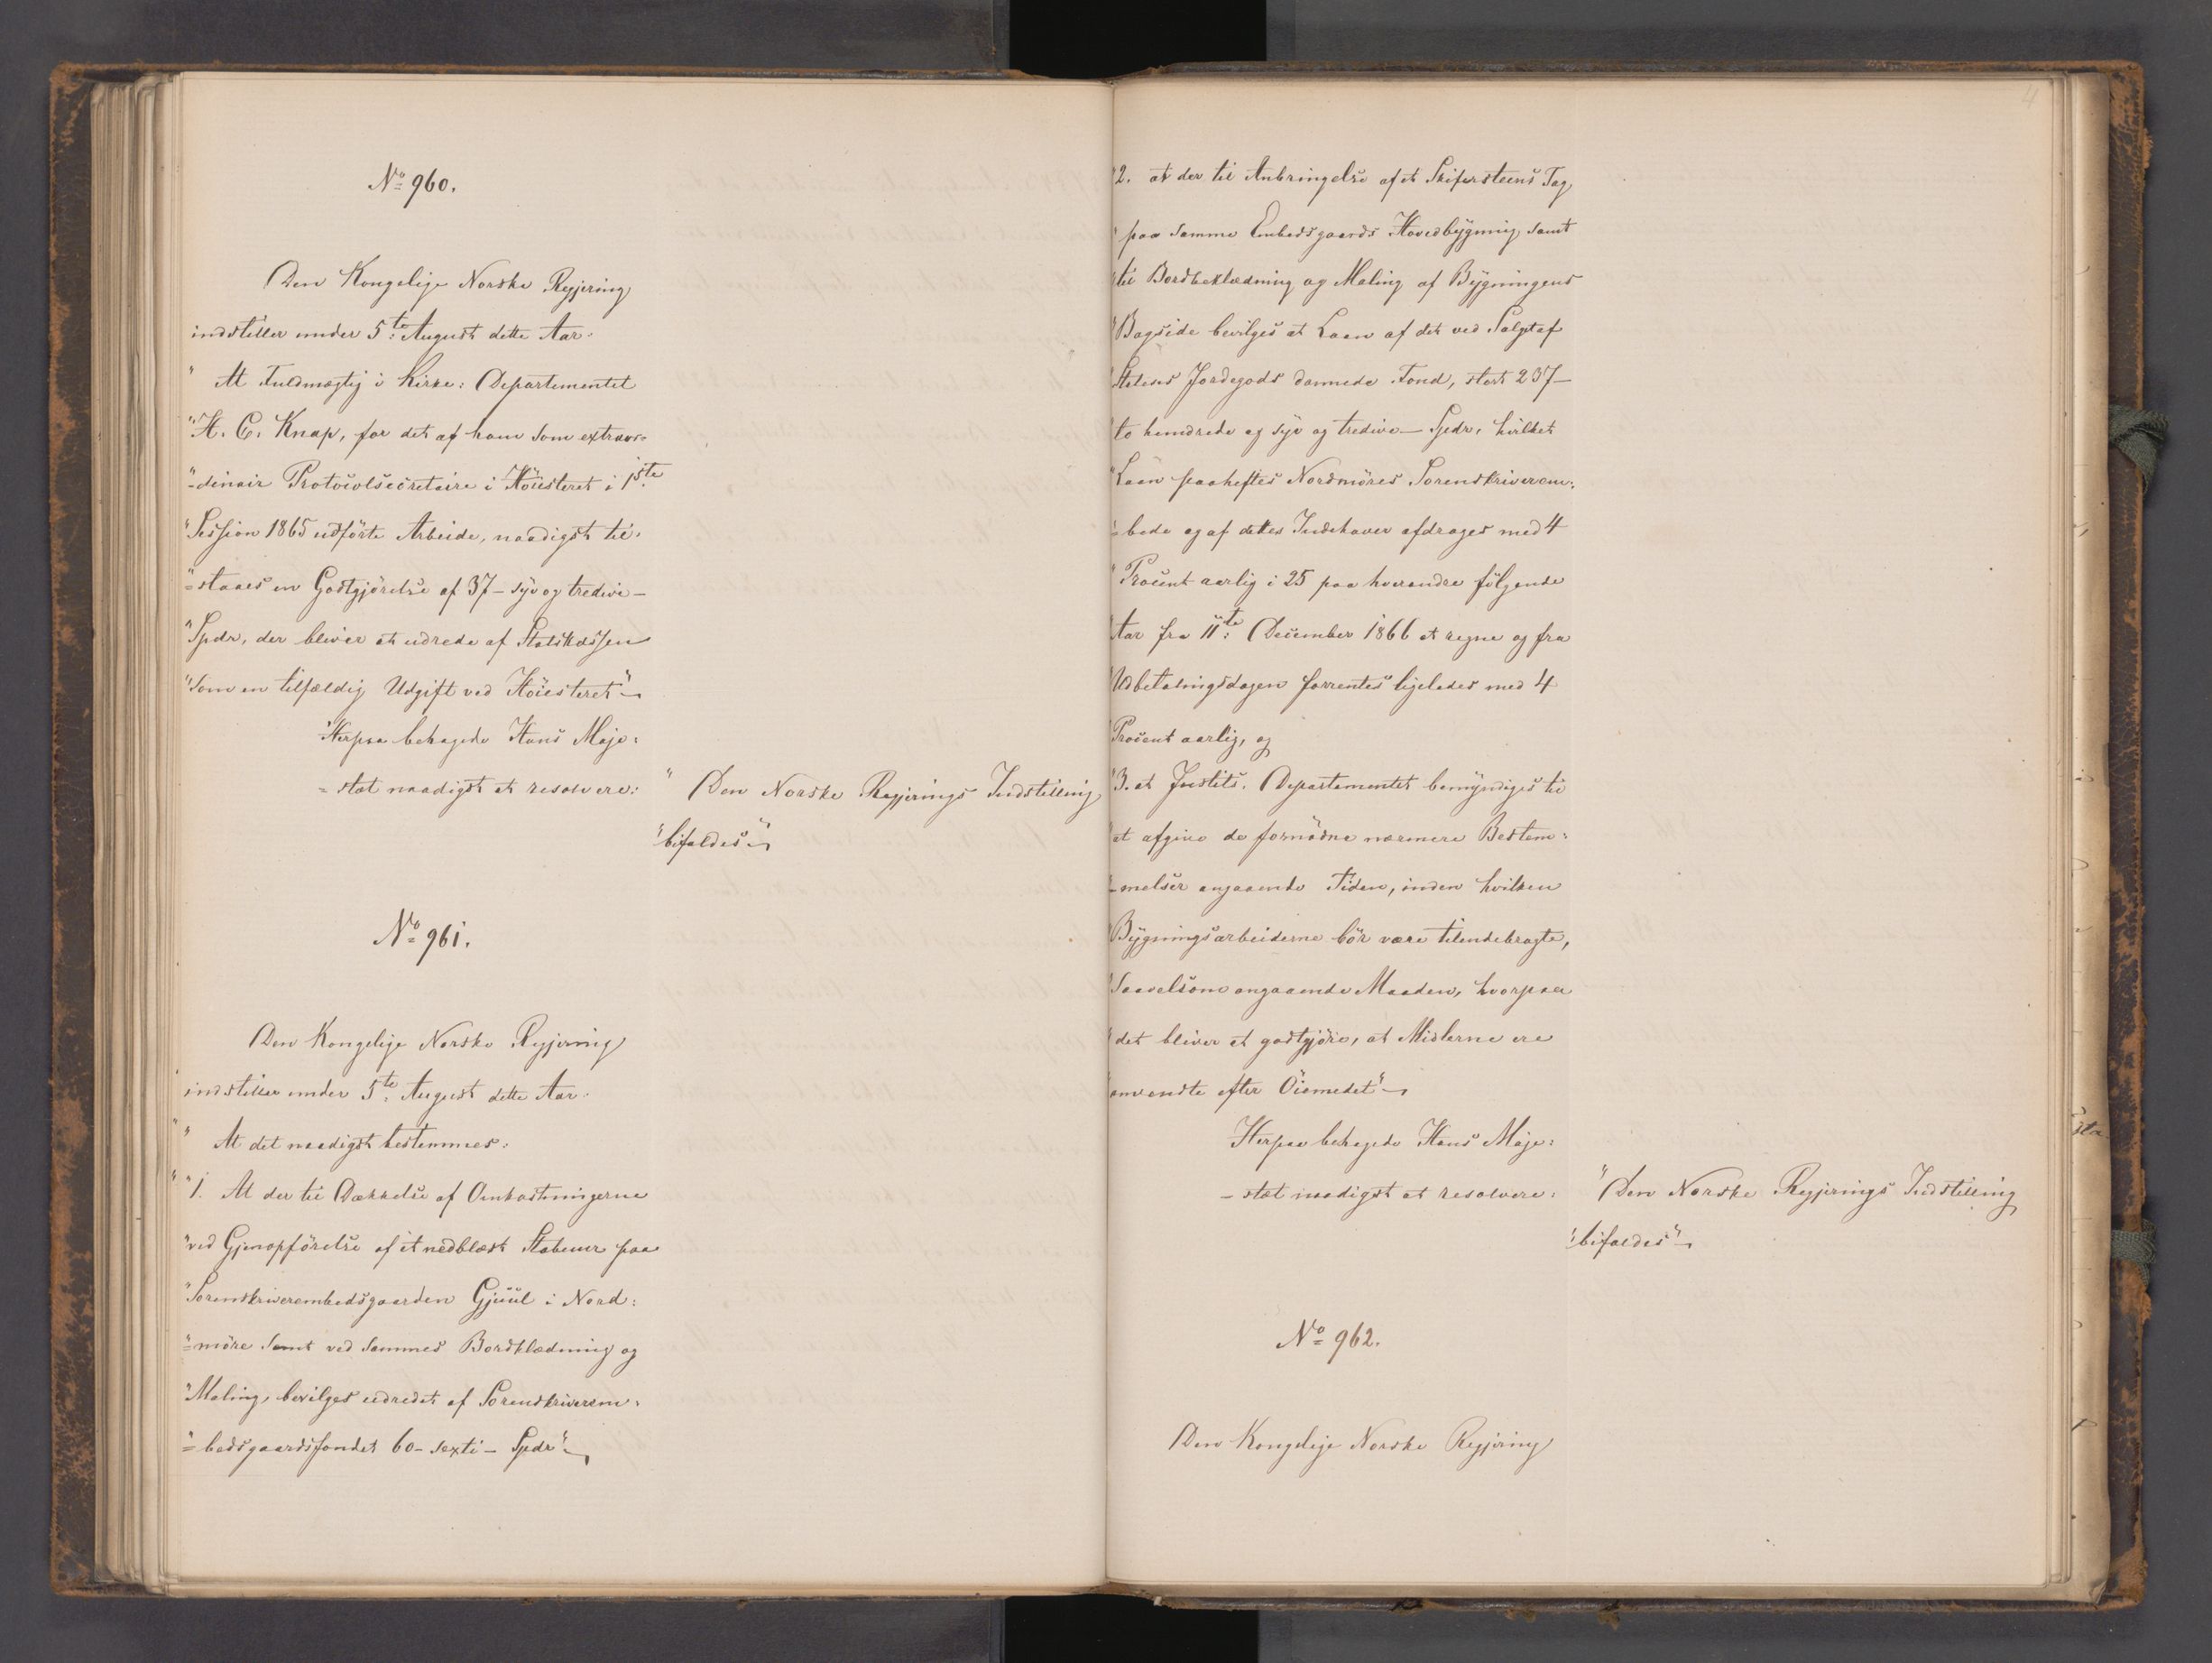 No 960.
Den Kongelige Norske Regjering
indstiller under 5te August dette Aar.
" At Fuldmægtig i Kirke: Departementet
"H. C. Knap, for det af ham som extraor=
"=dinair Protocolsecretaire i Höiesteret i 1ste
"Session 1865 udförte Arbeide, naadigst til=
"=staaes en Godtgjörelse af 37 - syv og tredive -
"Spdr, der bliver at udrede af Statskassen
"som en tilfældig Udgift ved Höiesteret"
Herpaa behagede Hans Maje=
=stæt naadigst at resolvere:
" Den Norske Regjerings Indstilling
"bifaldes"
No 961.
Den Kongelige Norske Regjering
indstiller under 5te August dette Aar.
" At det naadigst bestemmes:
" "1. At der til Dækkelse af Omkostningerne
"ved Gjenopförelse af et nedblæst Stabuur paa
"Sorenskriverembedsgaarden Gjüül i Nord=
"=möre samt ved sammes Bordklædning og
"Maling, bevilges udredet af Sorenskriverem=
"=bedsgaardsfondet 60 - sexti - Spdr"
4
"2. at der til Anbringelse af et Skifersteens Tag
"paa samme Embedsgaards Hovedbygning samt
"til Bordbeklædning og Maling af Bygningens
"Bagside bevilges et Laan af det ved Salget af
"Statens Jordegods dannede Fond, stort 237 -
"to hundrede og syv og tredive - Spdr, hvilket
"Laan paaheftes Nordmöres Sorenskriverem=
"=bede og af dettes Indehaver afdrages med 4
"Procent aarlig i 25 paa hverandre fölgende
"Aar fra 11te December 1866 at regne og fra
"Udbetalingsdagen forrentes ligeledes med 4
"Procent aarlig, og
"3. at Justits. Departementet bemyndiges til
"at afgive de fornödne nærmere Bestem=
"=melser angaaende Tiden, inden hvilken
"Bygningsarbeiderne bör være tilendebragte,
"saavelsom angaaende Maaden, hvorpaa
"det bliver at godtgjöre, at Midlerne ere
"anvendte efter Öiemedet"
Herpaa behagede Hans Maje=
=stæt naadigst at resolvere:
" Den Norske Regjerings Indstilling
"bifaldes"
No 962.
Den Kongelige Norske Regjering